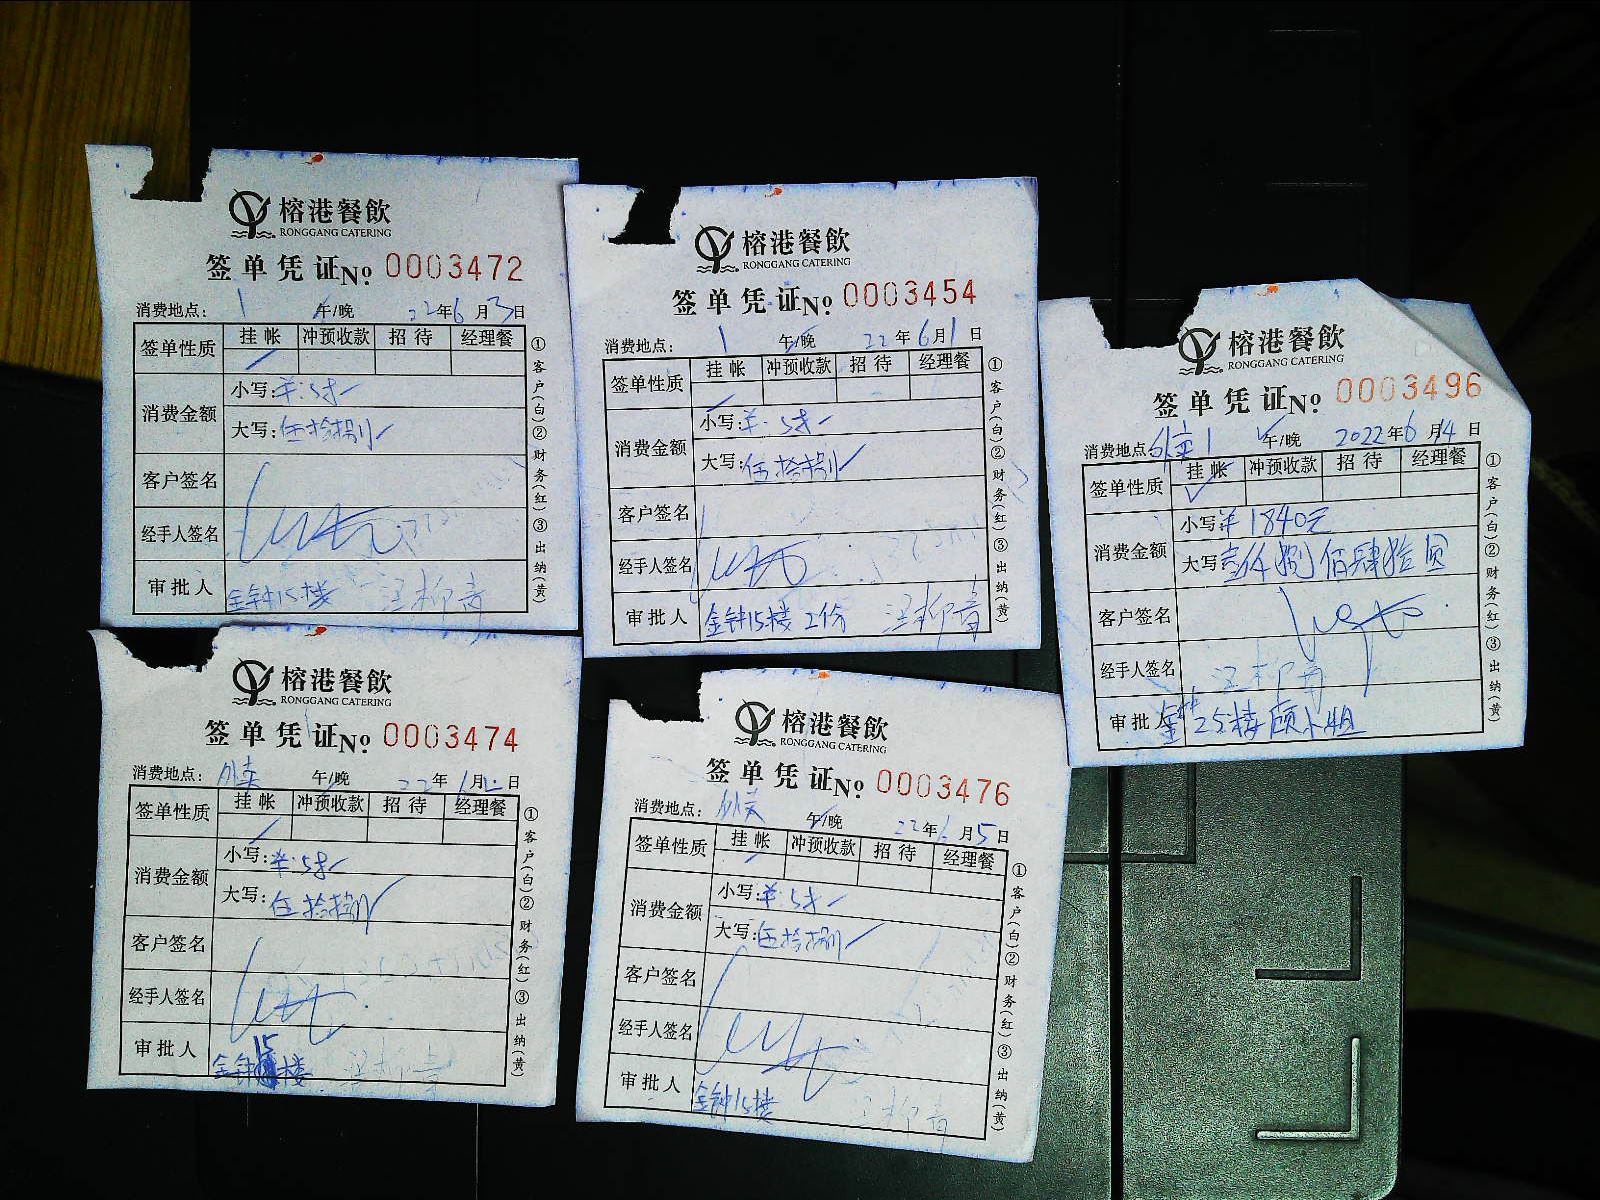 榕港餐飲
RONGGANG CATERING
签单凭证No. 0003472
消费地点: 1 午/晚 22年6月3日
签单性质 挂帐 冲预收款 招待 经理餐
消费金额 小写:¥:58
大写:伍拾捌
客户签名
经手人签名
审批人 金钟15楼 汪柳青
①客户(白)②财务(红)③出纳(黄)
榕港餐飲
RONGGANG CATERING
签单凭证No. 0003454
消费地点: 1 午/晚 22年6月1日
签单性质 挂帐 冲预收款 招待 经理餐
消费金额 小写:¥:58
大写:伍拾捌
客户签名
经手人签名
审批人 金钟15楼 2份 汪柳青
①客户(白)②财务(红)③出纳(黄)
榕港餐飲
RONGGANG CATERING
签单凭证No. 0003496
消费地点 外卖1 午/晚 2022年6月14日
签单性质 挂帐 冲预收款 招待 经理餐
消费金额 小写¥1840元
大写壹仟捌佰肆拾圆
客户签名
经手人签名 汪柳青
审批人 金钟25楼顾小姐
①客户(白)②财务(红)③出纳(黄)
榕港餐飲
RONGGANG CATERING
签单凭证No. 0003474
消费地点: 外卖 午/晚 22年6月 日
签单性质 挂帐 冲预收款 招待 经理餐
消费金额 小写:¥:58
大写:伍拾捌
客户签名
经手人签名
审批人 金钟15楼 汪柳青
①客户(白)②财务(红)③出纳(黄)
榕港餐飲
RONGGANG CATERING
签单凭证No. 0003476
消费地点: 外卖 午/晚 22年6月5日
签单性质 挂帐 冲预收款 招待 经理餐
消费金额 小写:¥:58
大写:伍拾捌
客户签名
经手人签名
审批人 金钟15楼 汪柳青
①客户(白)②财务(红)③出纳(黄)